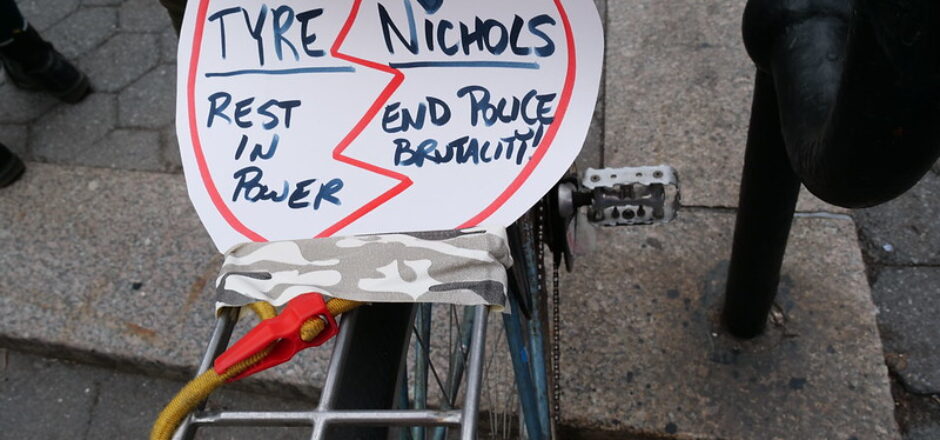 TYRE NICHOLS
REST
IN
POWER
END POLICE
BRUTALITY!